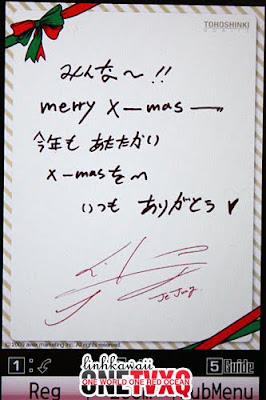 TOHOSHINKI
MOBILE
みんな〜!!
merry X-mas ー
今年も あたたかい
X-masを〜
いつも ありがとう♥
Je Jung
© 2009 avex marketing Inc. All Rights Reserved.
1
5 Guide
linhkawaii
ONETVXQ
ONE WORLD ONE RED OCEAN
Reg
SubMenu